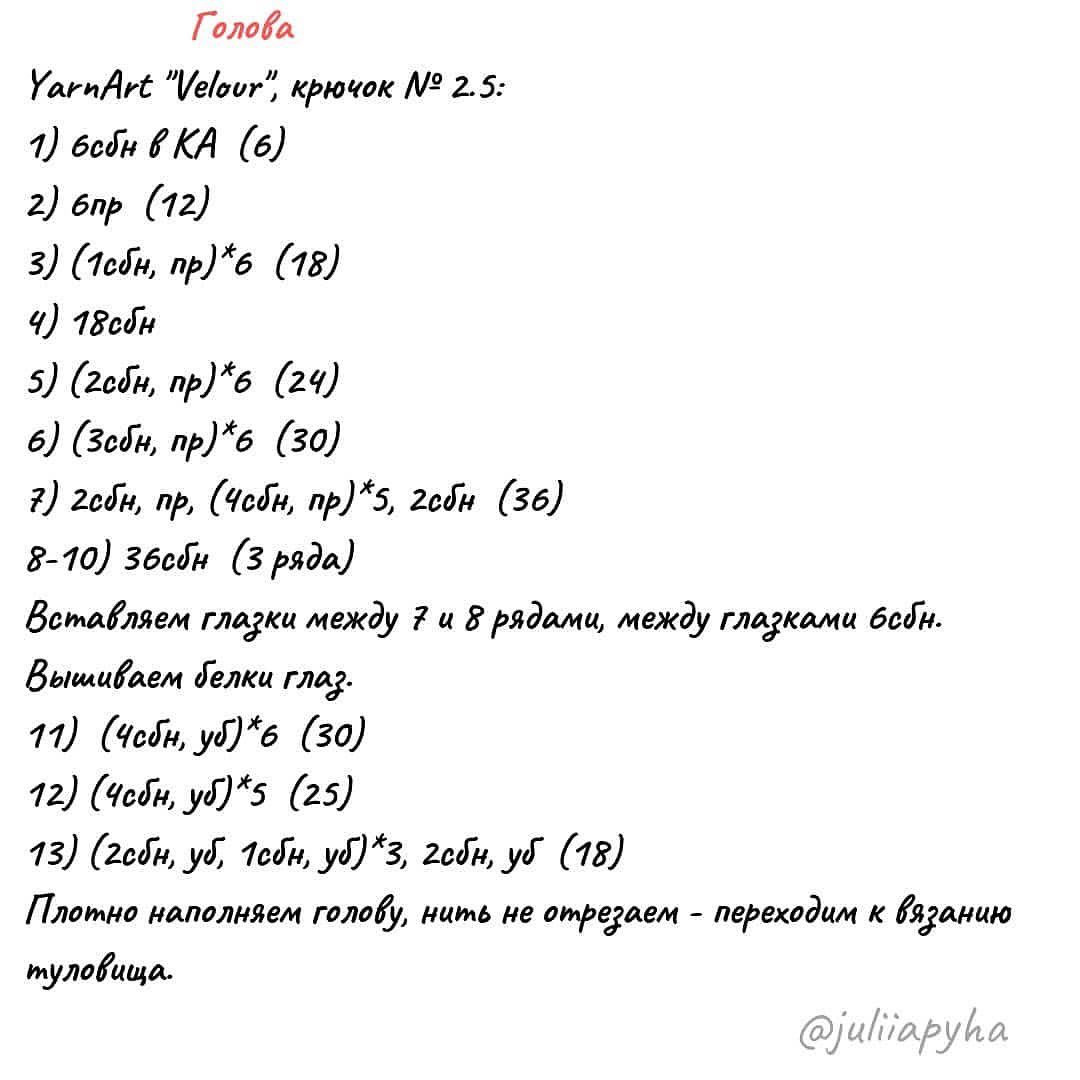 Голова
YarnArt "Velour", крючок № 2.5:
1) 6сбн в КА (6)
2) 6пр (12)
3) (1сбн, пр)*6 (18)
4) 18сбн
5) (2сбн, пр)*6 (24)
6) (3сбн, пр)*6 (30)
7) 2сбн, пр, (4сбн, пр)*5, 2сбн (36)
8-10) 36сбн (3 ряда)
Вставляем глазки между 7 и 8 рядами, между глазками 6сбн.
Вышиваем белки глаз.
11) (4сбн, уб)*6 (30)
12) (4сбн, уб)*5 (25)
13) (2сбн, уб, 1сбн, уб)*3, 2сбн, уб (18)
Плотно наполняем голову, нить не отрезаем - переходим к вязанию
туловища.
@juliiapyha